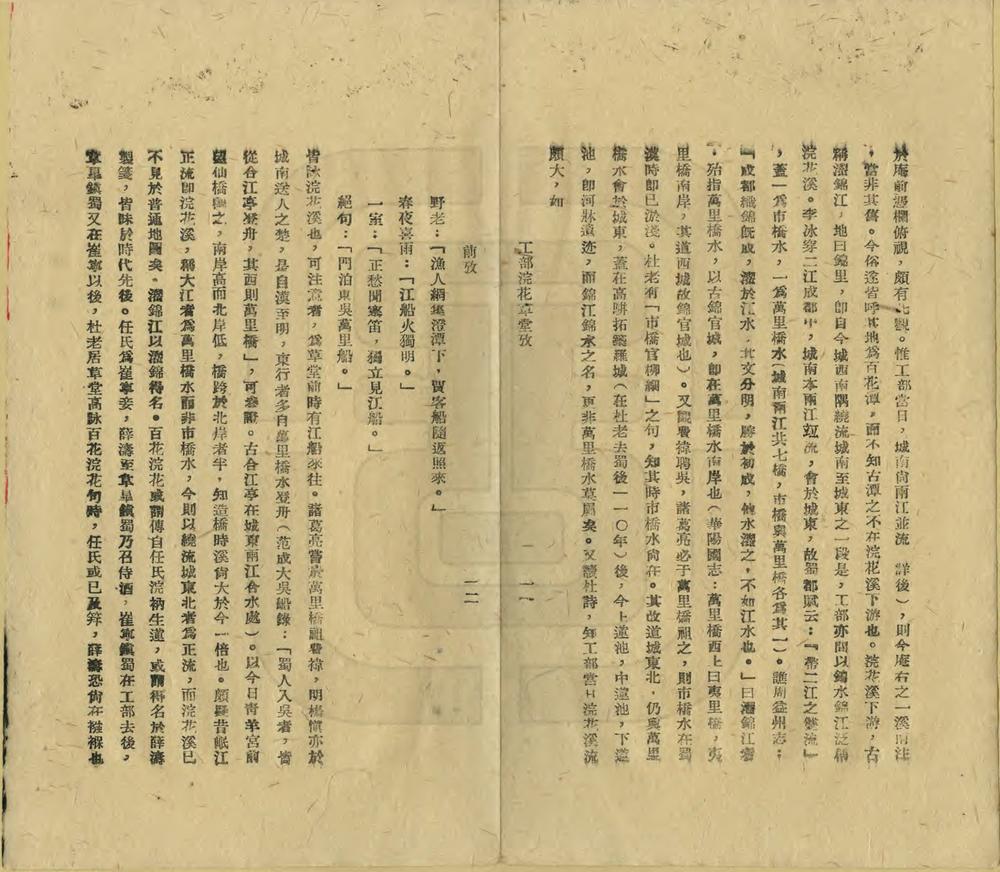 於庵前憑欄俯視，頗有壯觀。惟工部當日，城南尙兩江並流（詳後），則今庵右之一溪南注
，當非其舊。今俗遂皆呼其地爲百花潭，而不知古潭之不在浣花溪下游也。浣花溪下游，古
稱濯錦江，地曰錦里，卽自今城西南隅繞流城南至城東之一段是，工部亦間以錦水錦江泛稱
浣花溪。李冰穿二江成都中，城南本兩江竝流，會於城東，故蜀都賦云：「帶二江之雙流」
，蓋一爲市橋水，一爲萬里橋水（城南兩江共七橋，市橋與萬里橋各爲其一）。譙周益州志：
「成都織錦旣成，濯於江水，其文分明，勝於初成，他水濯之，不如江水也。」曰濯錦江者
，殆指萬里橋水，以古錦官城，卽在萬里橋水南岸也（華陽國志：萬里橋西上曰夷里橋，夷
里橋南岸，其道西城故錦官城也）。又觀費禕聘吳，諸葛亮必于萬里橋祖之，則市橋水在蜀
漢時卽已淤淺。杜老有「市橋官柳細」之句，知其時市橋水尙在。其改道城東北，仍與萬里
橋水會於城東，蓋在高駢拓築羅城（在杜老去蜀後一一〇年）後，今上蓮池，中蓮池，下蓮
池，卽河牀遺迹，而錦江錦水之名，更非萬里橋水莫屬矣。又讀杜詩，知工部當日浣花溪流
頗大，如
工部浣花草堂攷
前攷
一二
野老：「漁人網集澄潭下，賈客船隨返照來。」
春夜喜雨：「江船火獨明。」
一室：「正愁聞塞笛，獨立見江船。」
絕句：「門泊東吳萬里船。」
皆詠浣花溪也，可注意者，爲草堂前時有江船來往。諸葛亮嘗於萬里橋祖費禕，明楊愼亦於
城南送人之楚，是自漢至明，東行者多自萬里橋水登舟（范成大吳船錄：「蜀人入吳者，皆
從合江亭登舟，其西則萬里橋」，可參證。古合江亭在城東兩江合水處）。以今日靑羊宮前
望仙橋觀之，南岸高而北岸低，橋跨於北岸者半，知造橋時溪尙大於今一倍也。顧昔岷江
正流卽浣花溪，稱大江者爲萬里橋水而非市橋水，今則以繞流城東北者爲正流，而浣花溪已
不見於普通地圖矣。濯錦江以濯錦得名。百花浣花或謂傳自任氏浣衲生蓮，或謂得名於薛濤
製箋，皆昧於時代先後。任氏爲崔寧妾，薛濤至韋皐鎭蜀乃召侍酒，崔寧鎭蜀在工部去後，
韋皐鎭蜀又在崔寧以後，杜老居草堂高詠百花浣花句時，任氏或已及笄，薛濤恐尙在襁褓也